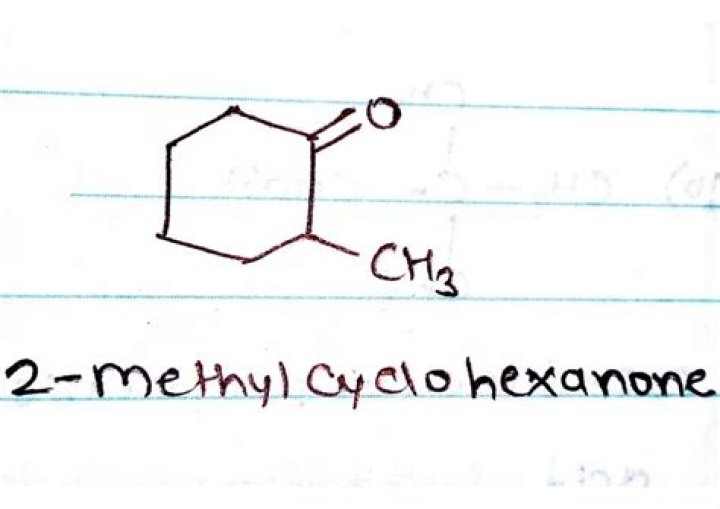 O
CH3
2-methyl cyclohexanone